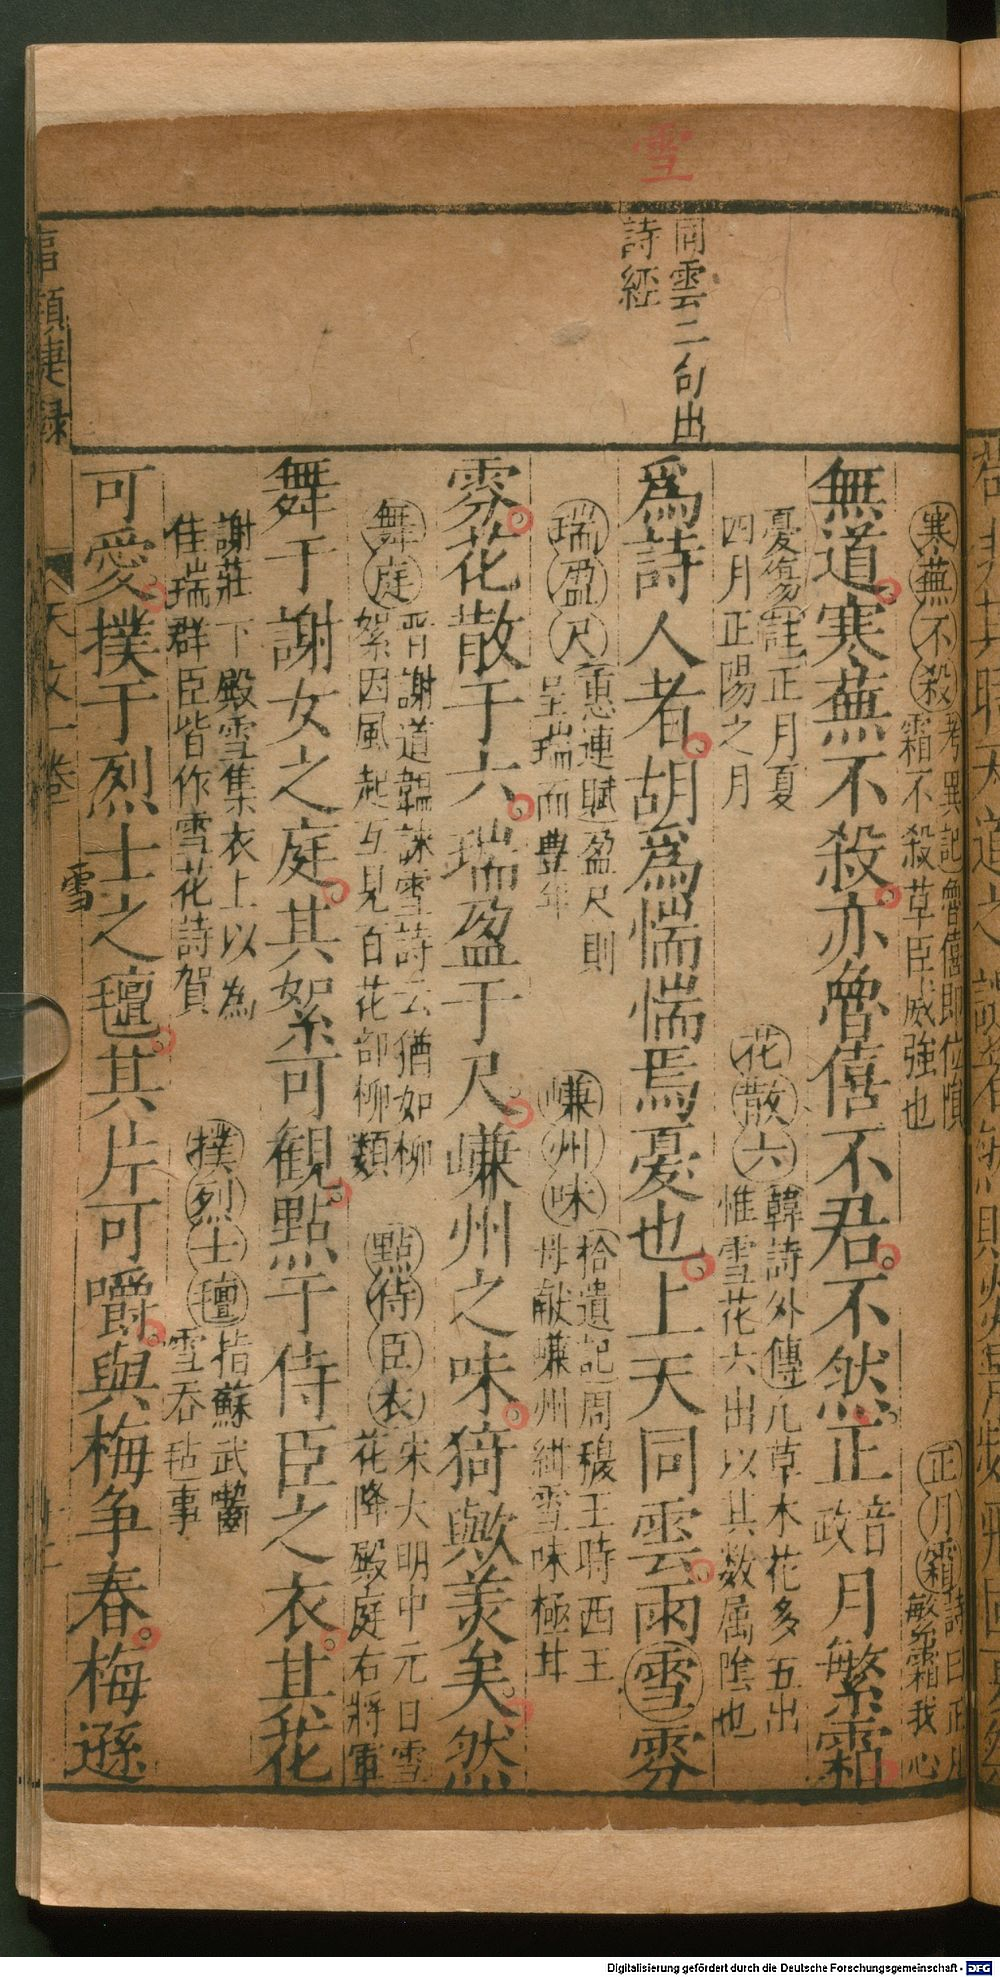 雪
同雲二句出
詩經
寒蕪不殺 考異記魯僖即位隕
霜不殺草臣威強也
正月霜 詩曰正月
繁霜我心
無道寒蕪不殺亦魯僖不君不然正音政月繁霜
憂傷註正月夏
四月正陽之月
花散六 韓詩外傳凡草木花多五出
惟雪花六出以其数属陰也
為詩人者胡為惴惴焉憂也上天同雲雨雪雰
瑞盈尺 惠連賦盈尺則
呈瑞而豊年
嵰州味 拾遺記周穆王時西王
母献嵰州甜雪味極甘
雰花散于六瑞盈于尺嵰州之味猗歟羨矣然
舞庭 晋謝道韞詠雪詩云猶如柳
絮因風起互見百花部柳類
點侍臣衣 宋大明中元日雪
花降殿庭右將軍
舞于謝女之庭其絮可観點于侍臣之衣其花
謝莊下殿雪集衣上以為
佳瑞群臣皆作雪花詩賀
撲烈士氊 指蘇武嚙
雪吞毡事
可愛撲于烈士之氊其片可嚼與梅争春梅遜
事類捷録
天文一卷
雪
Digitalisierung gefördert durch die Deutsche Forschungsgemeinschaft - DFG